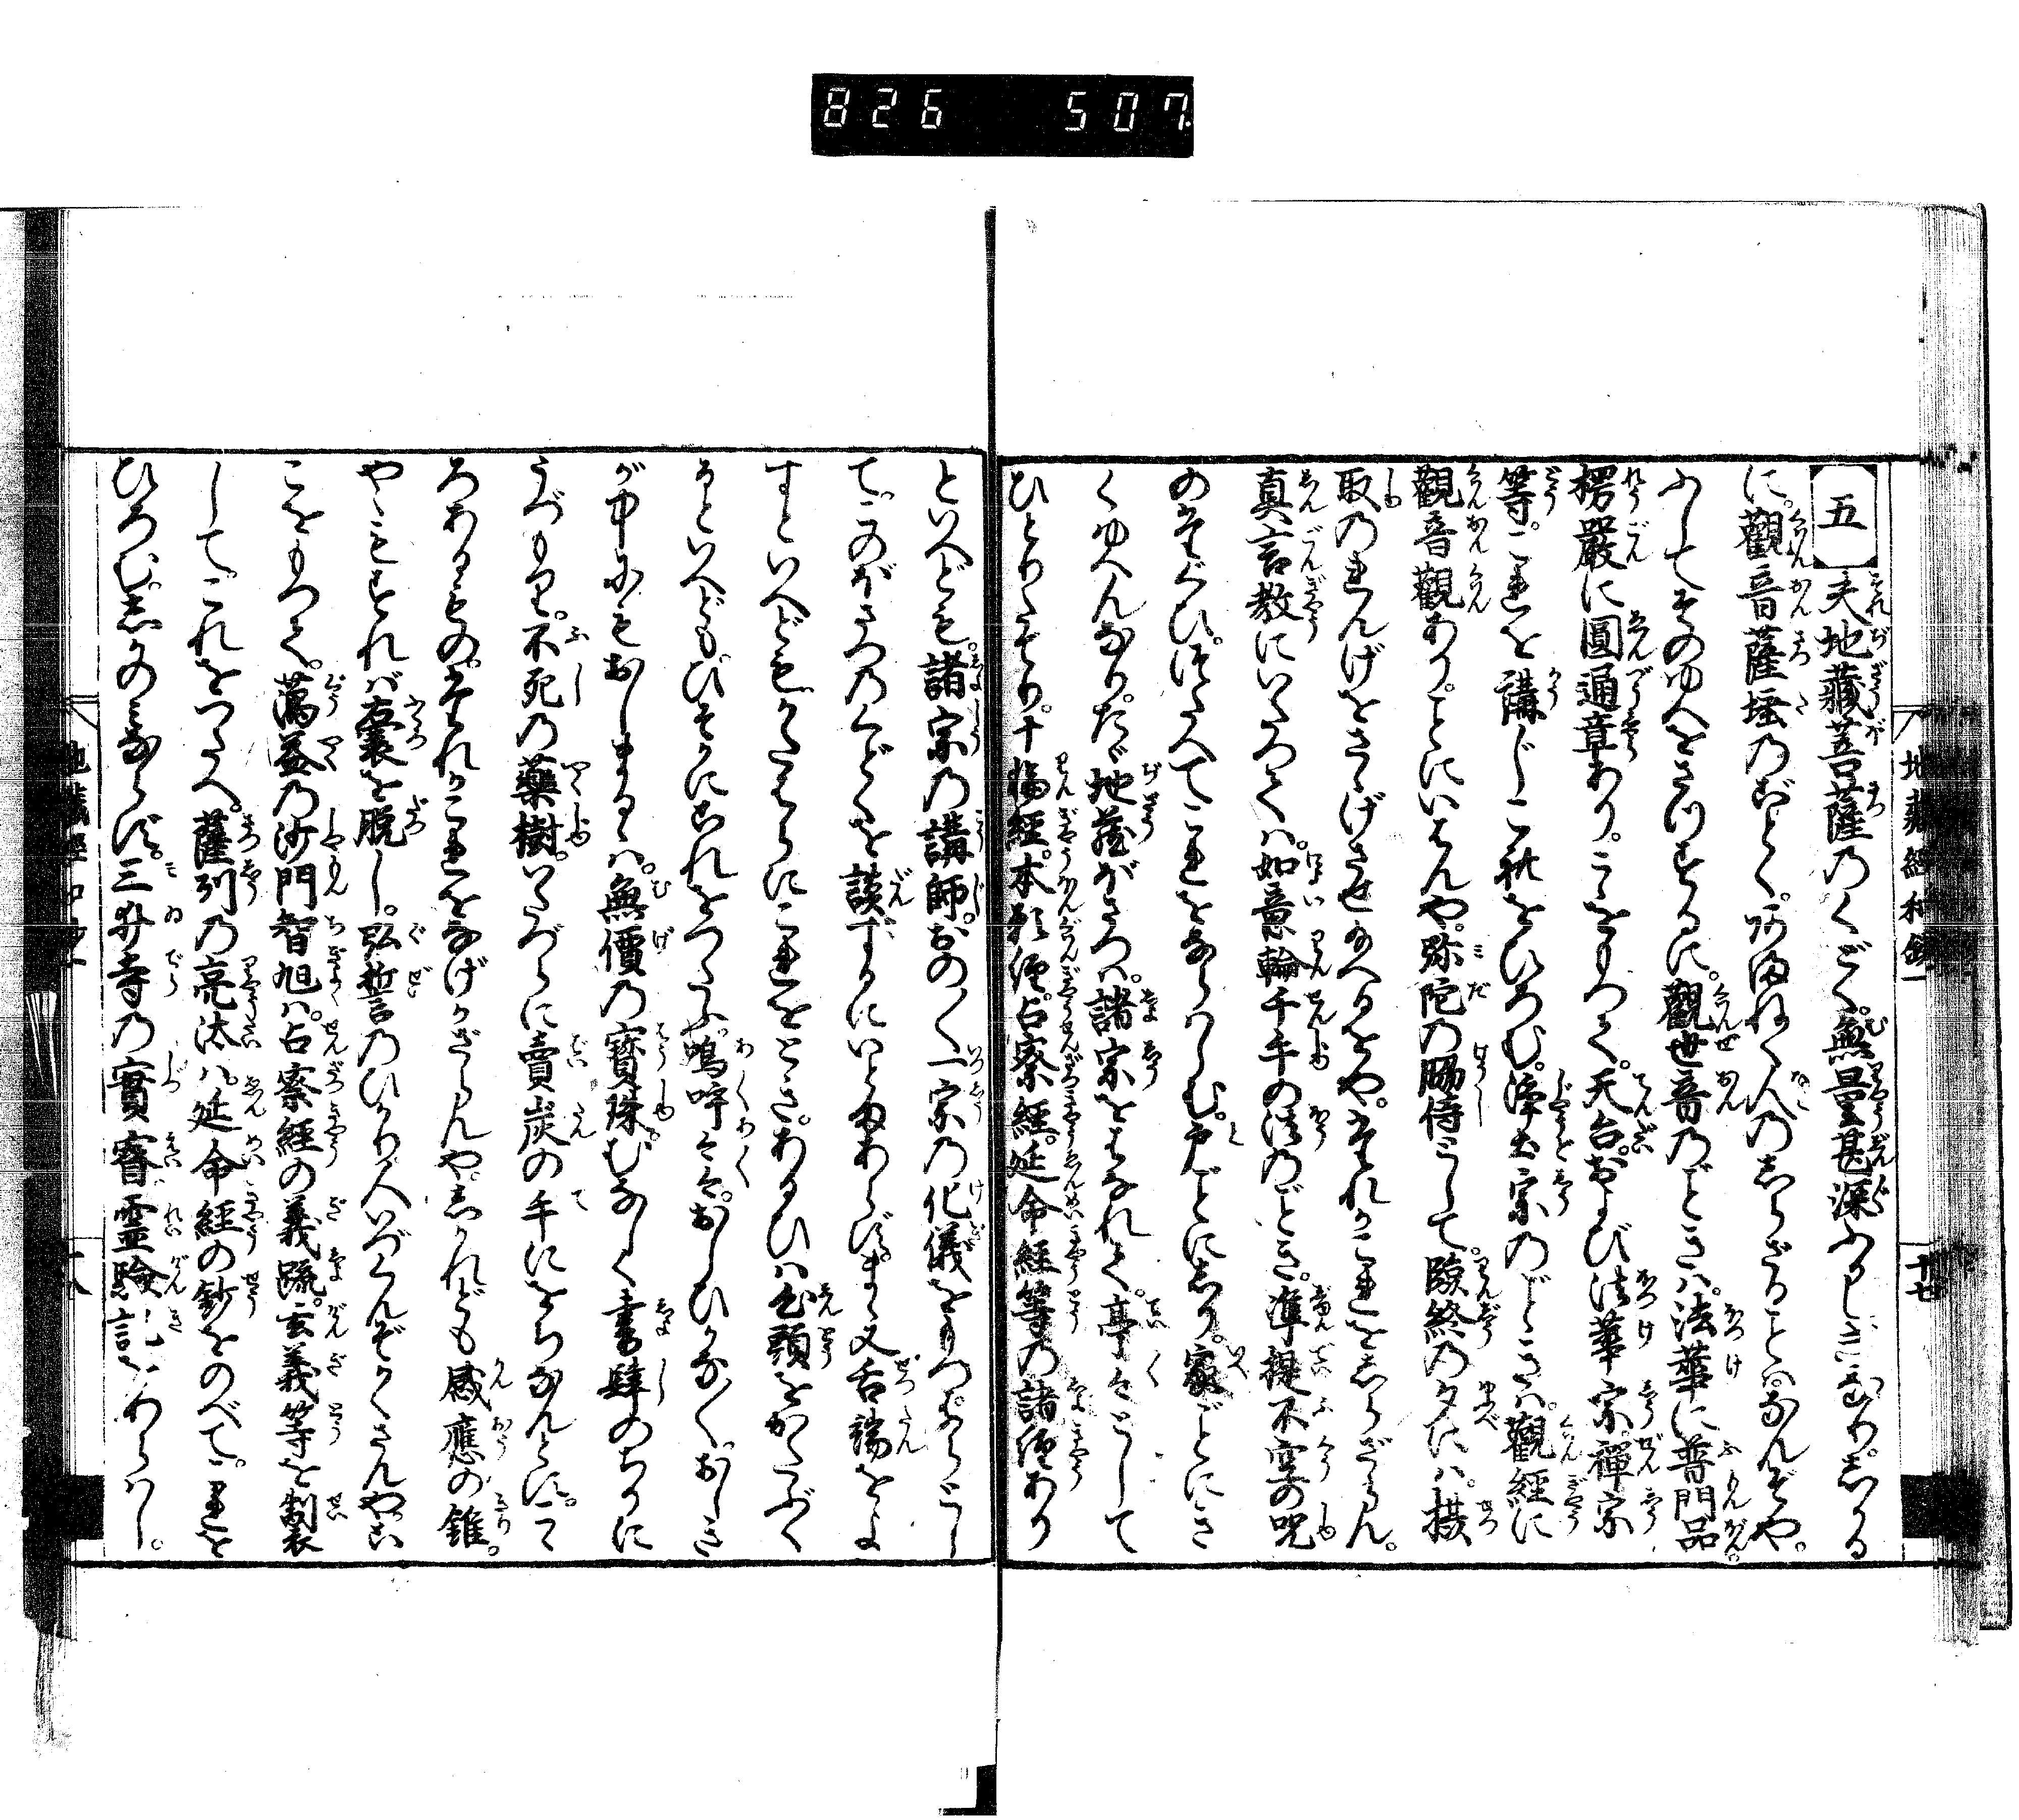 826 507
地藏經和鈔一
十七
五 夫地藏菩薩のくどく。無量甚深ふしぎなり。しかる
に。觀音薩埵のごとく。あまねく人のしらざることハなんぞや。
ふしてそのゆへをさつするに。觀世音のごときハ。法華に普門品
楞嚴に圓通章あり。こゝをもつて。天台。および法華宗。禪宗
等。これを講じこれをひろむ。淨土宗のごときハ。觀經に
觀音觀あり。ことにいはんや。弥陀の脇侍として。臨終の夕にハ。摂
取のれんげをさゝげさせ給へるをや。それかこれをしらざらん。
真言教にいたつてハ。如意輪千手の法のごとき。準提不空の呪
のたぐひ。つたへてこれをならハしむ。戸ごとにしり。家ごとにき
くゆへんなり。たゞ地藏ぼさつハ。諸宗をはなれて。亭々として
ひとりたてり。十輪經。本願經。占察經。延命經等の諸經あり
といへども。諸宗の講師。おの〱一宗の化儀をもつぱらとし
て。このぼさつのくどくを談ずるにいとまあらず。まゝ又舌端をよ
すといへども。かたはらにこれをとき。あるひハ
かといへども。ひそかにこれをつたふ。嗚呼々々。おしひかな〱。おしき
が中にもおしまるゝハ。無價の寶珠。むなしく書肆のちりに
うづもれ。不死の藥樹。いたづらに賣炭の手にをちなんとに。こゝ
ろあるもの。それかこれをなげかざらんや。しかれども感應の錐。
やゝもすれバ嚢を脱し。弘誓のひかり人いづくんぞかくさんや。こ
こをもつて。蕅益の沙門智旭ハ。占察經の義疏。玄義等を製
して。これをつたへ。薩列の亮汰ハ。延命經の鈔をのべて。これを
ひろむ。しかのみならず。三井寺の實睿靈驗記をあらハし。
十八